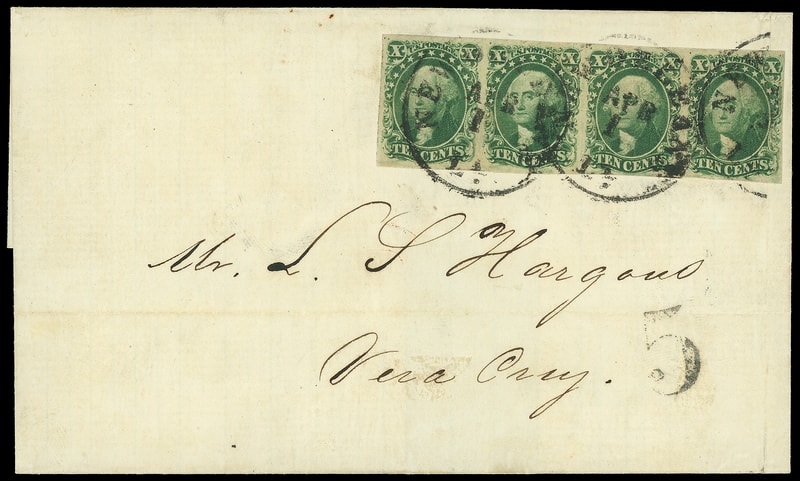 X U.S. POSTAGE X X U.S. POSTAGE X X U.S. POSTAGE X X U.S. POSTAGE X
TEN CENTS TEN CENTS TEN CENTS TEN CENTS
APR
1
LA.
Mr. L. S Hargous
Vera Cruz.
5